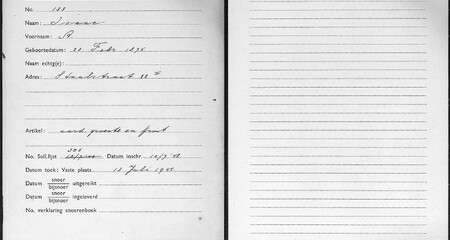 No. 133
Naam: Isaac
Voornaam: A.
Geboortedatum: 21 Febr 1875
Naam echtg(e):
Adres: Staalstraat 22
Artikel: aard. groente en fruit
300
No. Soll.lijst Datum inschr. 10/7'42
Datum toek: Vaste plaats 18 Juli 1942
Datum snoer
bijsnoer uitgereikt
Datum snoer
bijsnoer ingeleverd
No. verklaring snoerenboek